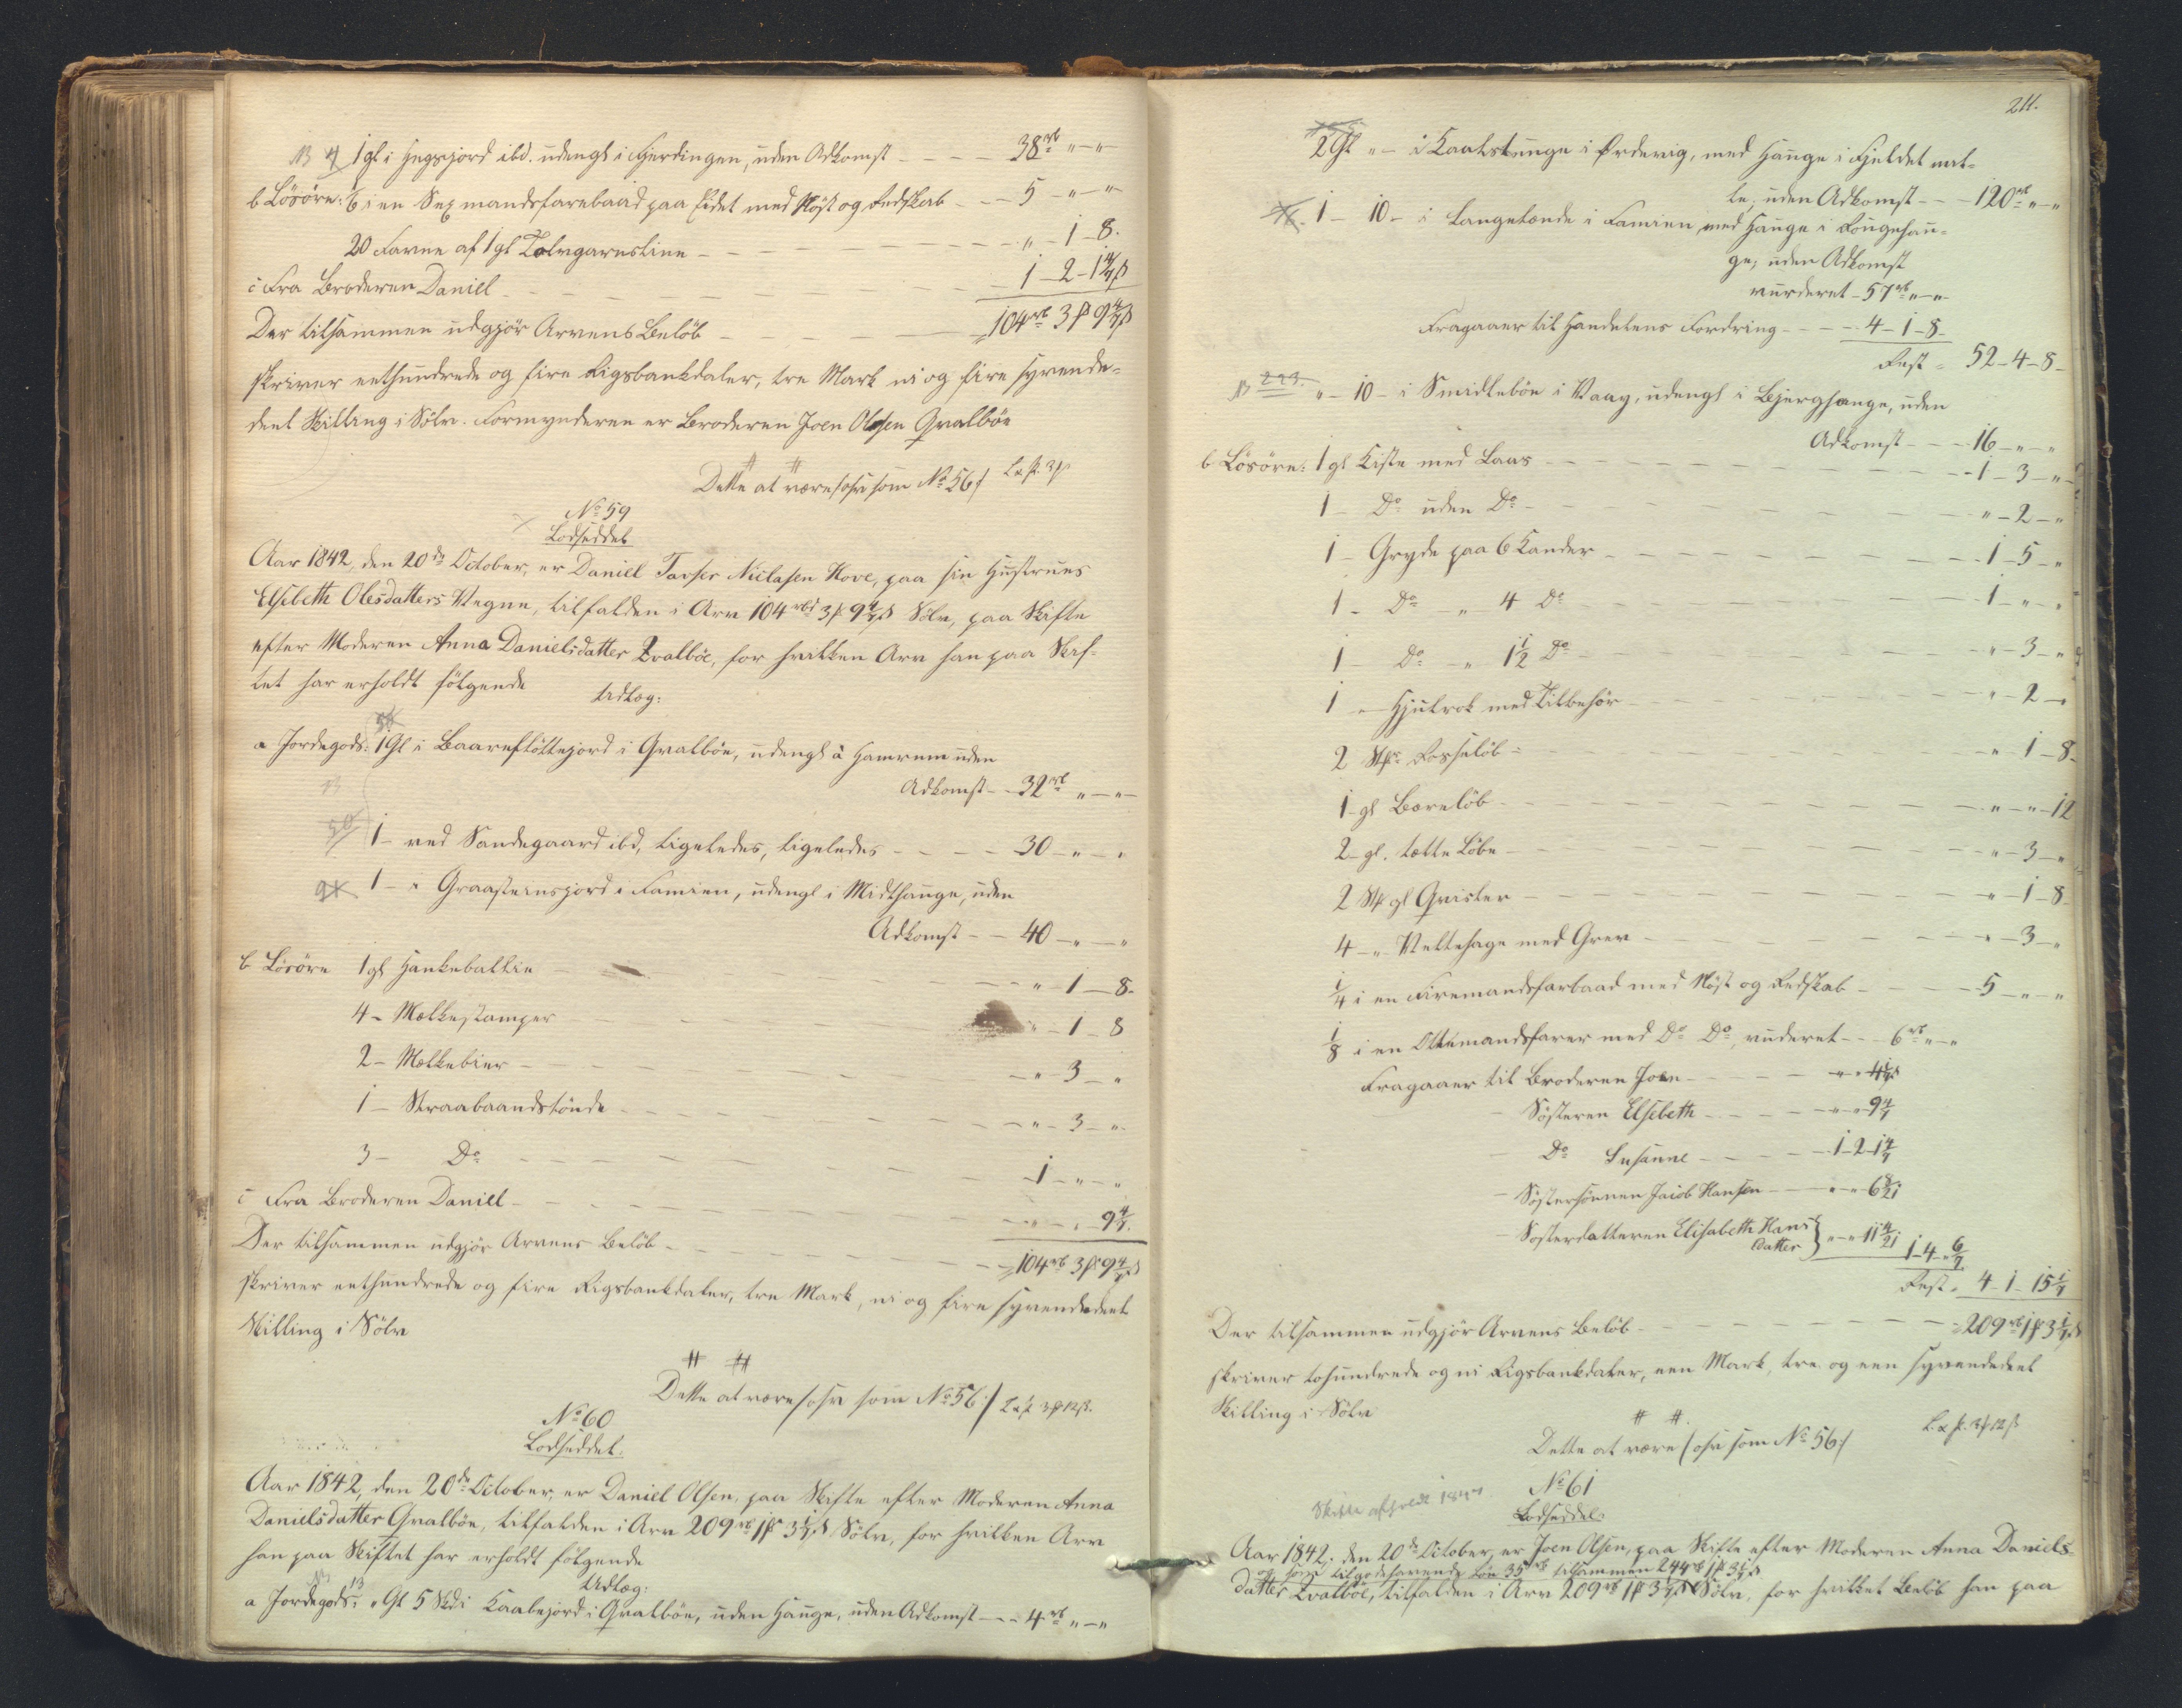 1 gl i Hegsjord ibd. udengl i Gjerdingen, uden Adkomst - - - - 38 rb „ — „
b Lösöre: 1/6 i en Sexmandsfarebaad paa Eidet med Nöst og Redskab - - - 5 „ — „
20 Favne af 1 gl Tolvgarnsline - - - „ - 1 - 8.
c Fra Broderen Daniel - - - 1 - 2 - 1 4/7 ß
Der tilsammen udgjör Arvens Belöb - - - 104 rb 3 ß 9 4/7 ß
skriver eethundrede og fire Rigsbankdaler, tre Mark ni og fire syvende-
deel Skilling i Sölv. Formynderen er Broderen Joen Olesen Qvalböe
Dette at være /:osv som No 56:/
No 59
Lodseddel
Aar 1842, den 20de October, er Daniel Tavser Niclasen Hove, paa sin Hustrues
Elsebeth Olesdatters Vegne, tilfalden i Arv 104 rbd 3 ß 9 4/7 ß Sölv, paa Skifte
efter Moderen Anna Danielsdatter Qvalböe, for hvilken Arv han paa Skif-
tet har erholdt fölgende
Udlæg:
a Jordegods: 1 Gl i Baareflöttejord i Qvalböe, udengl à Hamrum uden
Adkomst - - 32 rb „ — „
1 - ved Sandegaard ibd, ligeledes, ligeledes - - - - 30 - „ - „
1 - „ Graasteinsjord i Famien, udengl i Midthauge, uden
Adkomst - - 40 - „ - „
b Lösöre 1 gl Hankeballie - - - „ - 1 - 8.
4 - Melkestamper - - - „ - 1 - 8
2 - Melkebier - - - „ - 3 - „
1 - Straabaandstönde - - - „ - 3 - „
3 - Do - - - 1 - „ - „
c Fra Broderen Daniel - - - „ - „ - 9 4/7.
Der tilsammen udgjör Arvens Belöb - - - 104 rb 3 ß 9 4/7 ß
skriver eethundrede og fire Rigsbankdaler, tre Mark, ni og fire syvendedeel
Skilling i Sölv
Dette at være /:osv som No 56:/
No 60
Lodseddel.
Aar 1842, den 20de October, er Daniel Olsen, paa Skifte efter Moderen Anna
Danielsdatter Qvalböe, tilfalden i Arv 209 rb 1 ß 3 1/7 ß Sölv, for hvilken Arv
han paa Skiftet har erholdt fölgende
Udlæg:
a Jordegods: „ Gl 5 Skd i Kaalejord i Qvalböe, uden Hauge, uden Adkomst - - - 4 rb „ — „
211.
2 Gl „ - i Kaalstunge i Ördevig, med Hauge i Fjeldet
uden Adkomst - - - 120 rb „ - „
1 - 10 - i Langetænde i Famien, med Hauge i
ge, uden Adkomst
vurderet - 57 rb „ - „
Fragaaer til Handelens Fordring - - - - 4 - 1 - 8 -
Rest = 52 - 4 - 8 -
„ - 10 - i Smidlebön i Vaag, udengl i Bjerghauge, uden
Adkomst - - - 16 - „ - „
b Lösöre: 1 gl Kiste med Laas - - - 1 - 3 - „
1 - Do uden Do - - - „ - 2 - „
1 - Gryde paa 6 Kander - - - 1 - 5 - „
1 - Do - „ 4 Do - - - 1 - „ - „
1 - Do - „ 1 1/2 Do - - - „ - 3 - „
1 „ - Hjulrok med Tilbehör - - - „ - 2 - „
2 Stkr Rosselöb - - - „ - 1 - 8.
1 - gl Bæreløb - - - „ - „ - 12
2 - gl. tætte Löbe - - - „ - 3 - „
2 Stk gl Qvister - - - „ - 1 - 8
4 - „ Veltehage med Grev - - - „ - 3 - „
1/4 i en Firemandsfarbaad med Nöst og Redskab - - - 5 - „ - „
1/8 i en Ottemandsfarer med Do Do, vurderet - - - 6 rb „ - „
Fragaaer til Broderen Joen - - - „ - „ 4 1/7
- Sösteren Elsebeth - - - „ - „ 9 4/7
- Do Susanne - - - 1 - 2 - 1 4/7
- Söstersönnen Jacob Hansen - - „ - „ 6 8/21
- Sösterdatteren Elisabeth Hans
datter } „ - „ 11 4/21
1 - 4 - „ 6/7
Rest = 4 - 1 - 15 1/7
Der tilsammen udgjör Arvens Belöb - - - 209 rb 1 ß 3 1/7 ß
skriver tohundrede og ni Rigsbankdaler, een Mark, tre og een syvendedeel
Skilling i Sölv
Dette at være /:osv som No 56:/
Skifte afholdt 1847
No 61
Lodseddel
Aar 1842, den 20de October, er Joen Olsen, paa Skifte efter Moderen Anna Daniels-
og som tilgodehavende Lön 35 rb tilsammen 244 rb 1 ß 3 1/7 ß
datter Qvalböe, tilfalden i Arv 209 rb 1 ß 3 1/7 ß Sölv, for hvilket Belöb han paa